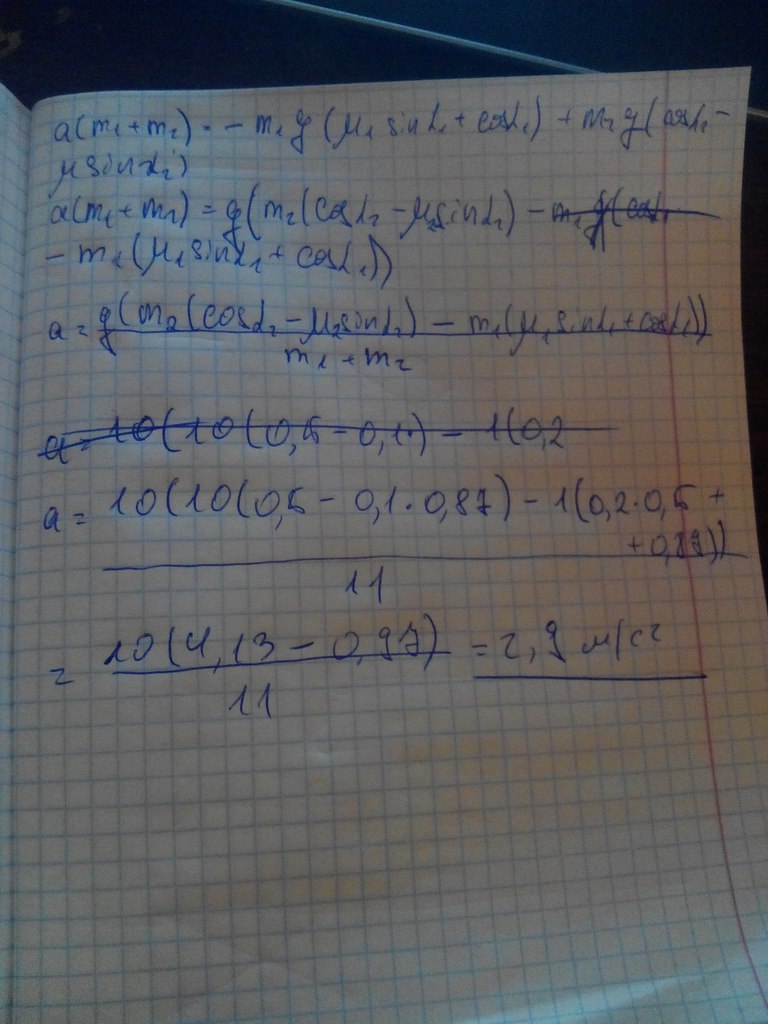 a(m₁+m₂) = - m₁ g (μ₁ sin α₁ + cos α₁) + m₂ g (cos α₂ -
μ sin α₂)
a(m₁+m₂) = g(m₂(cos α₂ - μ₂ sin α₂) - m₁ g(cos
- m₁(μ₁ sin α₁ + cos α₁))
a = g(m₂(cos α₂ - μ₂ sin α₂) - m₁(μ₁ sin α₁ + cos α₁))
m₁ + m₂
a = 10(10(0,5 - 0,1·) - 1(0,2
a = 10(10(0,5 - 0,1·0,87) - 1(0,2·0,5 +
+0,87))
11
= 10(4,13 - 0,97) = 2,9 м/с²
11